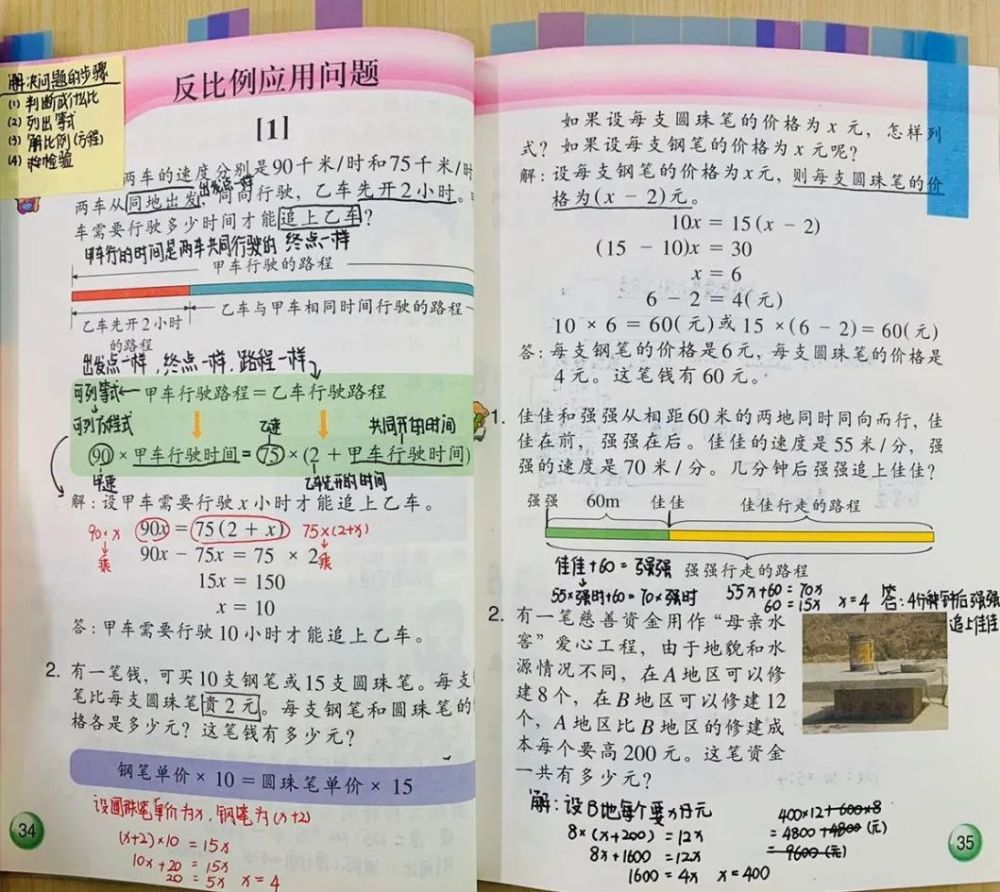 解决问题的步骤
(1) 判断成什么比
(2) 列出等式
(3) 解比例(方程)
(4) 检验
反比例应用问题
[1]
两车的速度分别是90千米/时和75千米/时
出发点一样
两车从同地出发,同向行驶,乙车先开2小时。
车需要行驶多少时间才能追上乙车?
甲车行的时间是两车共同行驶的 终点一样
甲车行驶的路程
乙车先开2小时的路程
乙车与甲车相同时间行驶的路程
出发点一样,终点一样,路程一样
可列等式←甲车行驶路程=乙车行驶路程
可列方程式
乙速
共同开的时间
90 × 甲车行驶时间 = 75 × (2 + 甲车行驶时间)
甲速
乙车先开的时间
解:设甲车需要行驶x小时才能追上乙车。
90×x
乘
90x = 75(2 + x)
75×(2+x)
乘
90x − 75x = 75 × 2
15x = 150
x = 10
答:甲车需要行驶10小时才能追上乙车。
2. 有一笔钱,可买10支钢笔或15支圆珠笔。每支
笔比每支圆珠笔贵2元。每支钢笔和圆珠笔的
格各是多少元?这笔钱有多少元?
钢笔单价 × 10 = 圆珠笔单价 × 15
设圆珠笔单价为x,钢笔为(x+2)
(x+2)×10 = 15x
10x+20 = 15x
20 = 5x x=4
34
如果设每支圆珠笔的价格为x元,怎样列
式?如果设每支钢笔的价格为x元呢?
解:设每支钢笔的价格为x元,则每支圆珠笔的价
格为(x − 2)元。
10x = 15(x − 2)
(15 − 10)x = 30
x = 6
6 − 2 = 4(元)
10 × 6 = 60(元)或15 ×(6 − 2)= 60(元)
答:每支钢笔的价格是6元,每支圆珠笔的价格是
4元。这笔钱有60元。
1. 佳佳和强强从相距60米的两地同时同向而行,佳
佳在前,强强在后。佳佳的速度是55米/分,强
强的速度是70米/分。几分钟后强强追上佳佳?
强强 60m 佳佳 佳佳行走的路程
佳佳+60=强强 强强行走的路程
55×强时+60=70×强时
55x+60=70x
60=15x x=4
答:4分钟后强强
追上佳佳
2. 有一笔慈善资金用作“母亲水
窖”爱心工程,由于地貌和水
源情况不同,在A地区可以修
建8个,在B地区可以修建12
个,A地区比B地区的修建成
本每个要高200元。这笔资金
一共有多少元?
解:设B地每个要x元
8×(x+200)=12x
8x+1600=12x
1600=4x x=400
400×12+600×8
=4800+4800(元)
=9600(元)
35